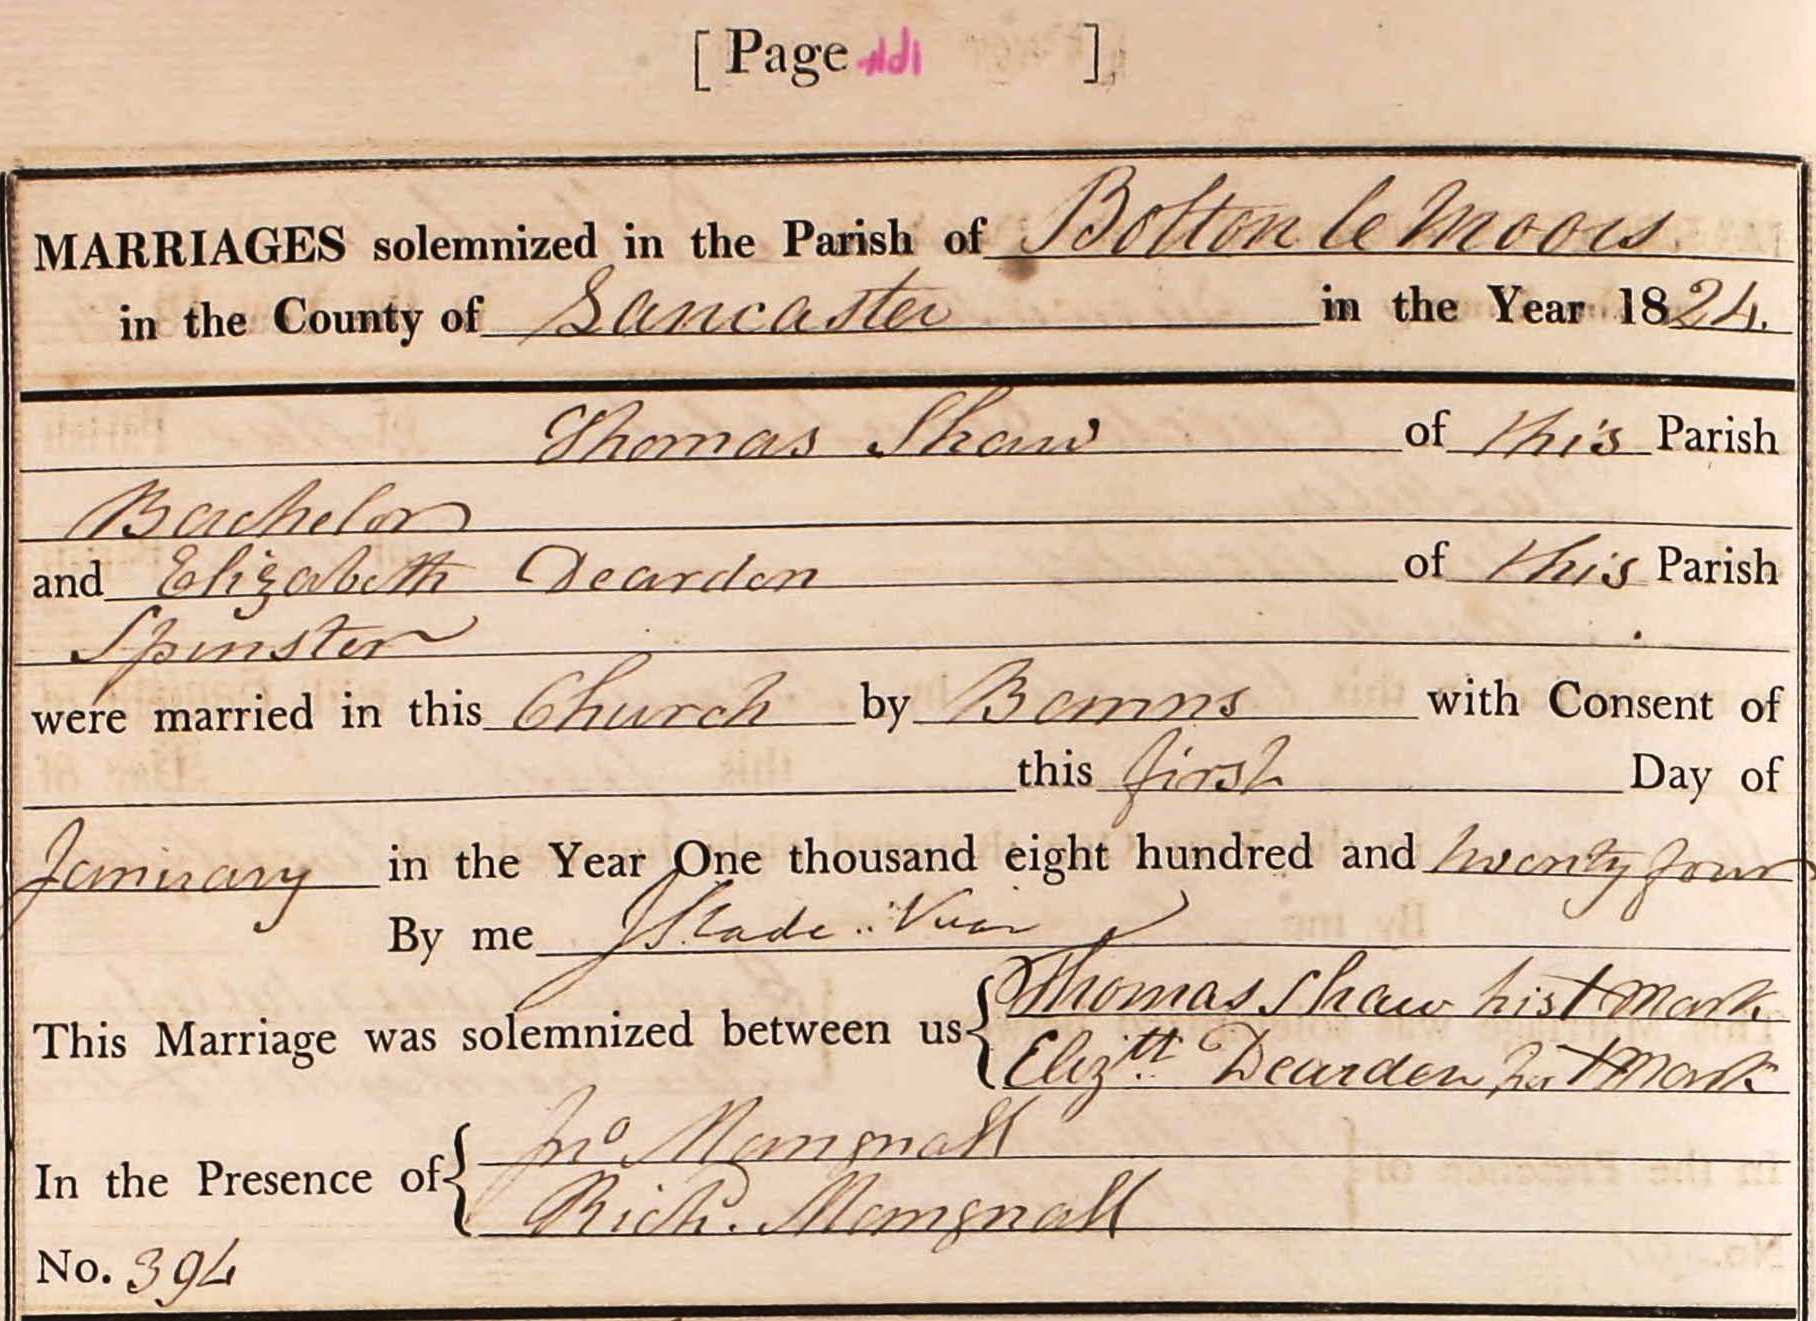 [ Page ]
MARRIAGES solemnized in the Parish of Bolton le Moors
in the County of Lancaster in the Year 1824.
Thomas Shaw of this Parish
Bachelor
and Elizabeth Dearden of this Parish
Spinster
were married in this Church by Banns with Consent of
this first Day of
January in the Year One thousand eight hundred and twenty four
By me J Slade .. Vicar
This Marriage was solemnized between us { Thomas Shaw his + Mark
Eliz.th Dearden her + Mark
In the Presence of { Jno Mangnall
Rich. Mangnall
No. 394